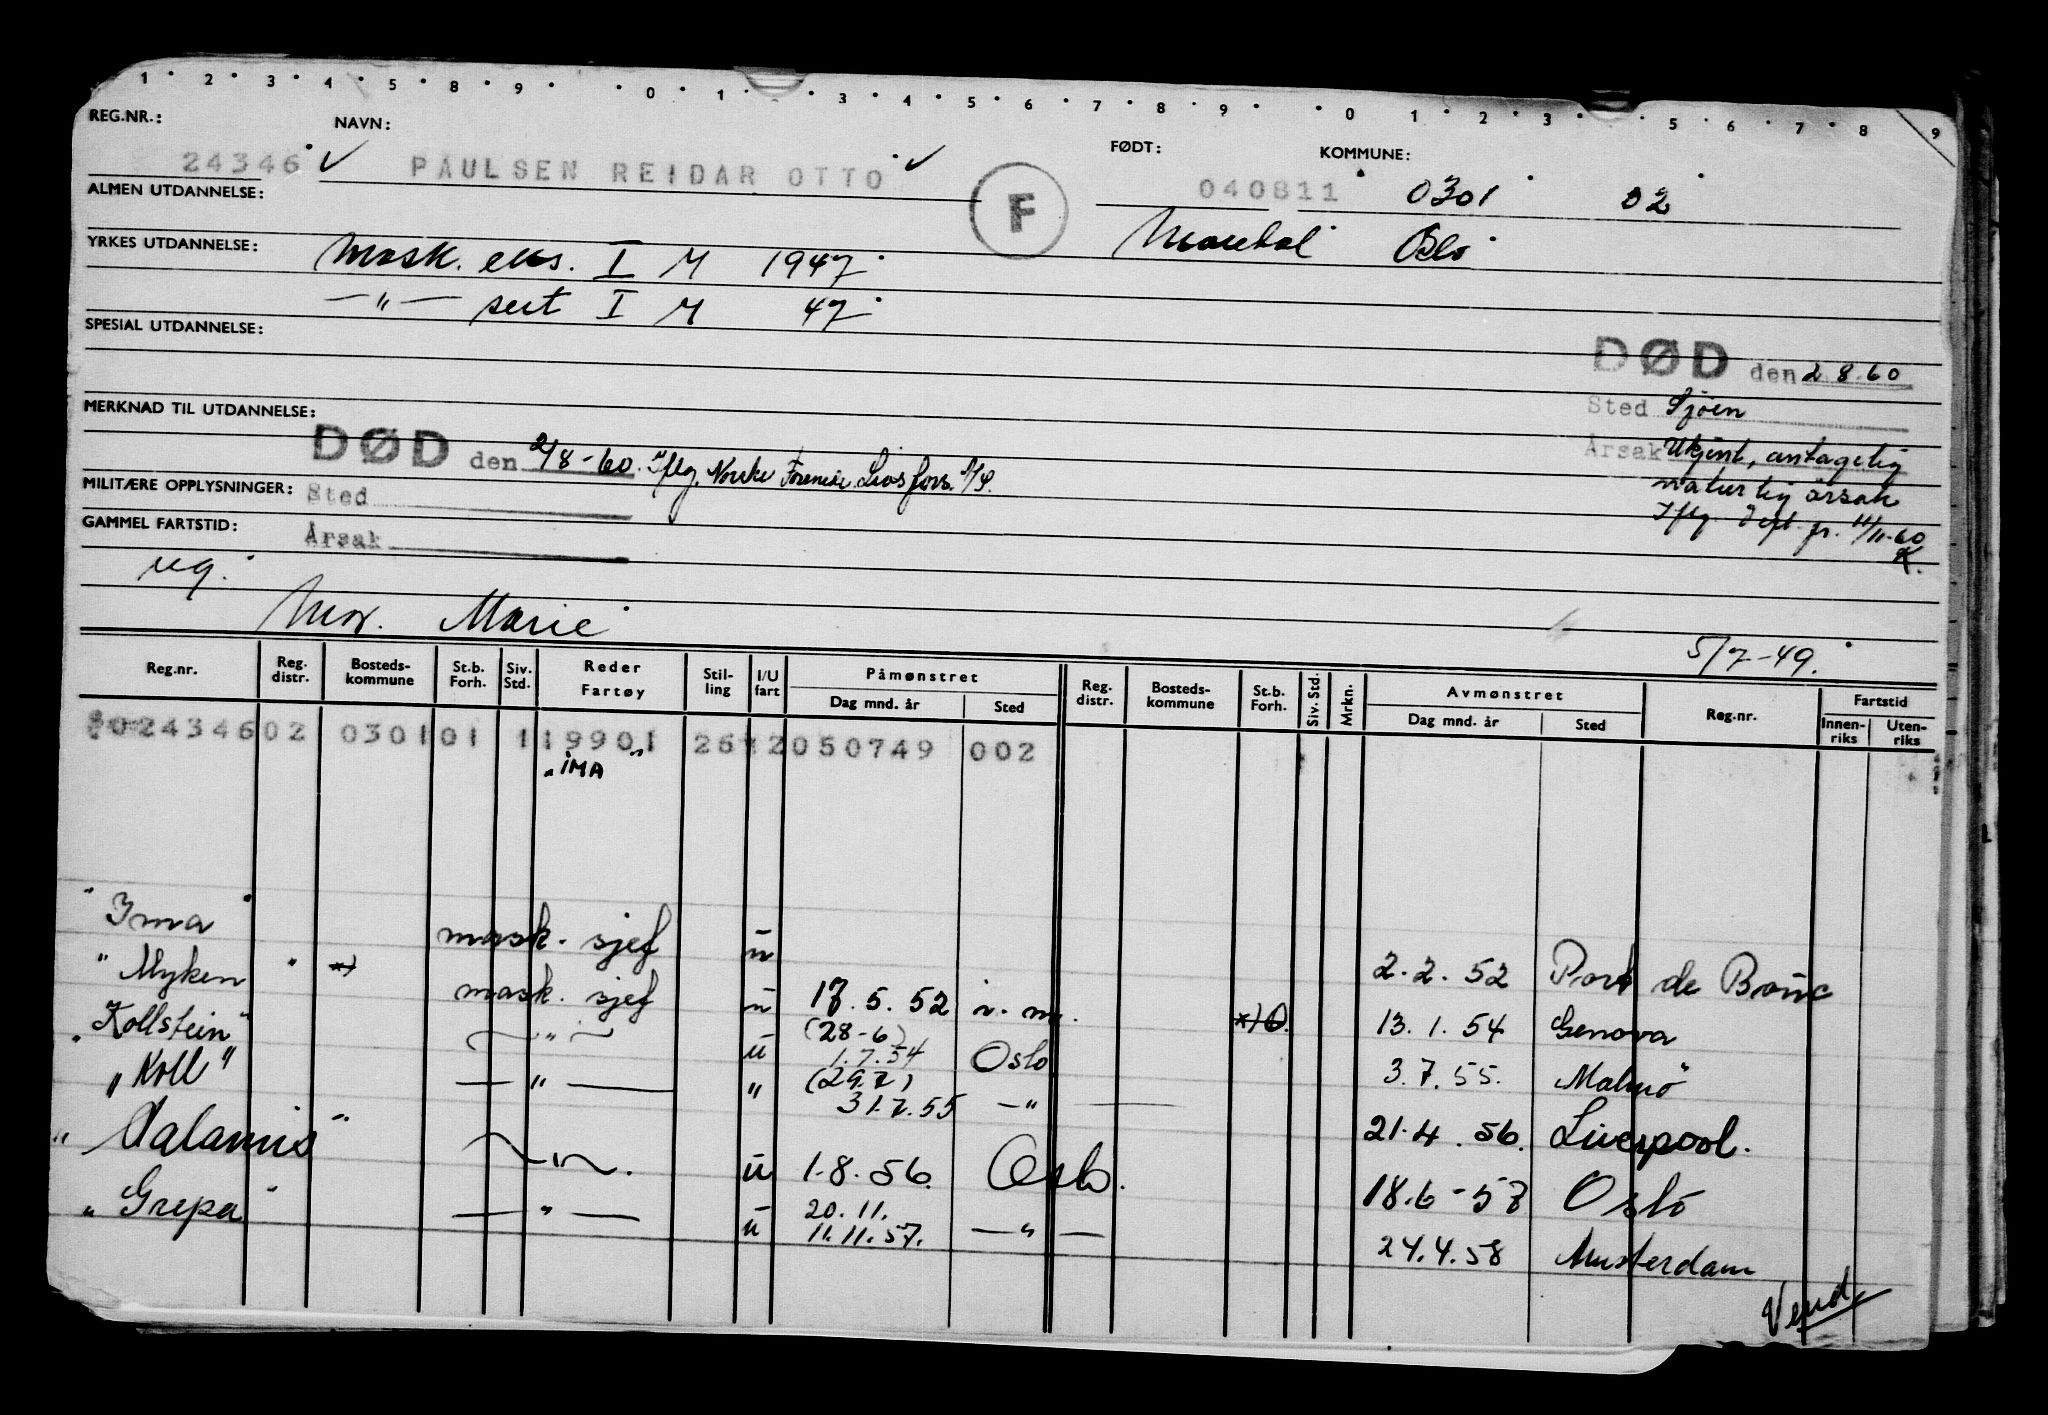 1 2 3 4 5 8 9 0 1 3 4 5 6 7 8 9 0 1 2 3 5 6 7 8 9
REG.NR.: NAVN: FØDT: KOMMUNE:
24346 ✓ PAULSEN REIDAR OTTO ✓ F 040811 0301 02
ALMEN UTDANNELSE:
Oslo
YRKES UTDANNELSE: Mask. eks. I M 1947
—"— sert I M 47
SPESIAL UTDANNELSE:
DØD den 2 8 60
Sted Sjøen
MERKNAD TIL UTDANNELSE:
Årsak Ukjent, antagelig
naturlig årsak
DØD den 2/8-60. Iflg. Norske Forenede Livsfors. A/S.
MILITÆRE OPPLYSNINGER: Sted
Iflg. Dept. fr. 11/11-60
K.
GAMMEL FARTSTID: Årsak
ug.
Mor. Marie
5/7-49.
Reg.nr. Reg. distr. Bosteds-kommune St.b. Forh. Siv. Std. Reder Fartøy Stil-ling I/U fart Påmønstret Dag mnd. år Sted Reg. distr. Bosteds-kommune St.b. Forh. Siv. Std. Mrkn. Avmønstret Dag mnd. år Sted Reg.nr. Fartstid Innen-riks Uten-riks
02434602 030101 119901 26 2050749 002
"IMA"
"Ima" mask. sjef u 2.2.52 Port de Bouc
"Myken" x) mask. sjef u 17.5.52 n.m. x) 0. 13.1.54 Genova
"Kollstein" —"— u (28-6) 1.7.54 Oslo 3.7.55. Malmø
"Koll" —"— " (29.7) 31.7.55 —"— 21.4.56. Liverpool.
"Salamis" —"—. u 1.8.56. Oslo. 18.6-57 Oslo
"Grepa" —"— u 20.11. 11.11.57. —"— 24.4.58 Amsterdam
Vend